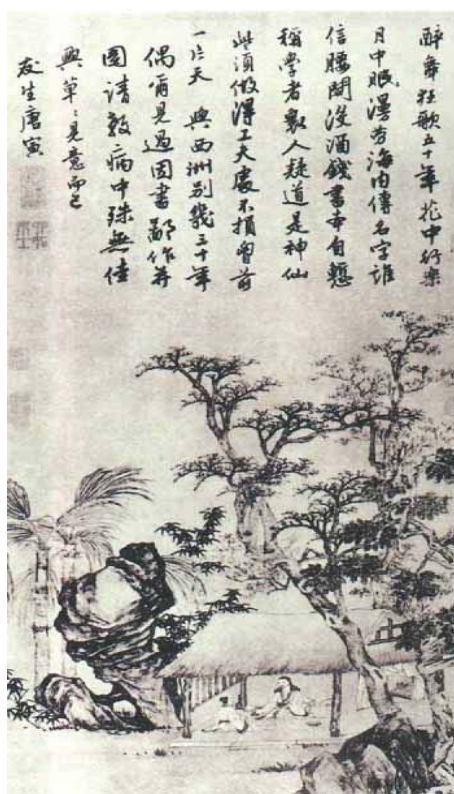 醉舞狂歌五十年花中行樂
月中眠漫勞海內傳名字誰
信腰間沒酒錢書本自慙
稱學者衆人疑道是神仙
些須做得工夫處不損胷前
一片天 與西洲別幾三十年
偶爾見過因書鄙作并
圖請教病中殊無佳
興草〻見意而已
友生唐寅